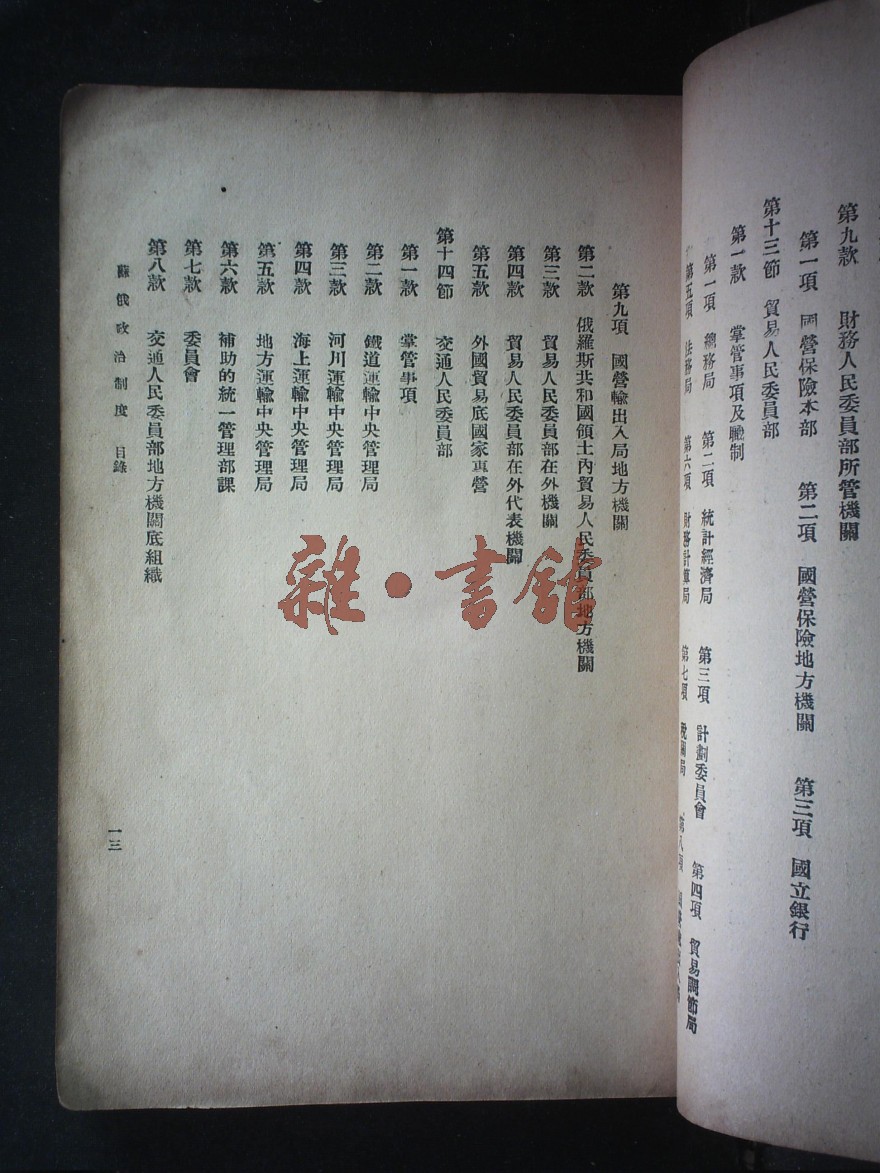 第九款　財務人民委員部所管機關
第一項　國營保險本部　第二項　國營保險地方機關　第三項　國立銀行
第十三節　貿易人民委員部
第一款　掌管事項及職制
第一項　總務局　第二項　統計經濟局　第三項　計劃委員會　第四項　貿易調節局
第五項　法務局　第六項　財務計算局　第七項　稅關局　第八項
第九項　國營輸出入局地方機關
第二款　俄羅斯共和國領土內貿易人民委員部地方機關
第三款　貿易人民委員部在外機關
第四款　貿易人民委員部在外代表機關
第五款　外國貿易底國家專營
第十四節　交通人民委員部
第一款　掌管事項
第二款　鐵道運輸中央管理局
第三款　河川運輸中央管理局
第四款　海上運輸中央管理局
第五款　地方運輸中央管理局
第六款　補助的統一管理部課
第七款　委員會
第八款　交通人民委員部地方機關底組織
蘇俄政治制度　目錄
一三
雜·書館